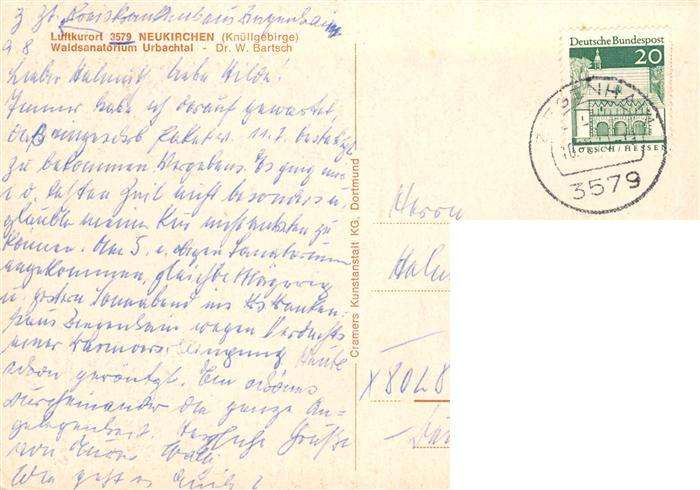 z. Zt. Kreiskrankenhaus Ziegenhain
9.8.
Luftkurort 3579 NEUKIRCHEN (Knüllgebirge)
Waldsanatorium Urbachtal - Dr. W. Bartsch
Lieber Helmut, liebe Hilde!
Immer habe ich darauf gewartet,
das eingeschrb. Paket v. 11.7. bestätigt
zu bekommen. Vergebens. Es ging mir
i. d. letzten Zeit nicht besonders u.
glaubte meine Kur nicht antreten zu
können. Am 5. i. obigen Sanatorium
angekommen, gleich
u. gestern Sonnabend ins Kskranken-
haus Ziegenhain wegen Verdachts
einer Darmverschlingung. Heute
schon geröntgt. Ein schönes
Durcheinander die ganze An-
gelegenheit. Herzliche Grüße
von Eurer
Wie geht es Euch?
Cramers Kunstanstalt KG. Dortmund
Deutsche Bundespost
20
LORSCH/HESSEN
ZIEGENHAIN
10.
3579
Herrn
X 8048